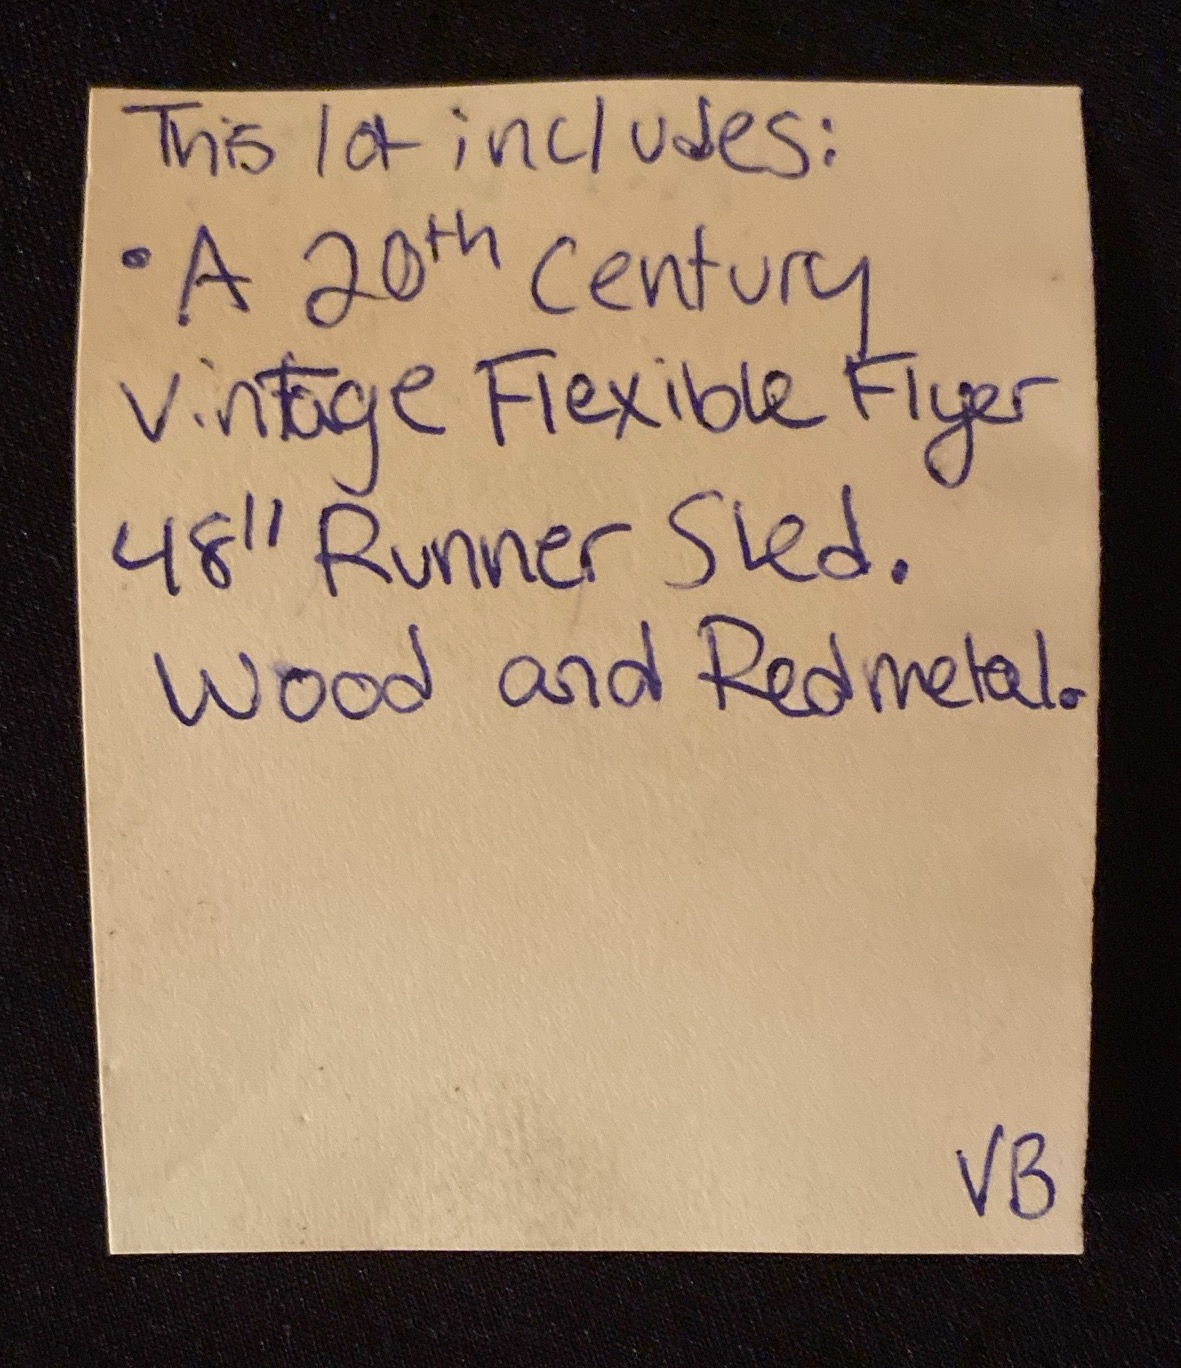 This lot includes:
• A 20th Century
Vintage Flexible Flyer
48" Runner Sled.
Wood and Red metal.
VB